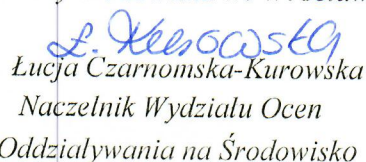 Łucja Czarnomska-Kurowska
Naczelnik Wydziału Ocen
Oddziaływania na Środowisko